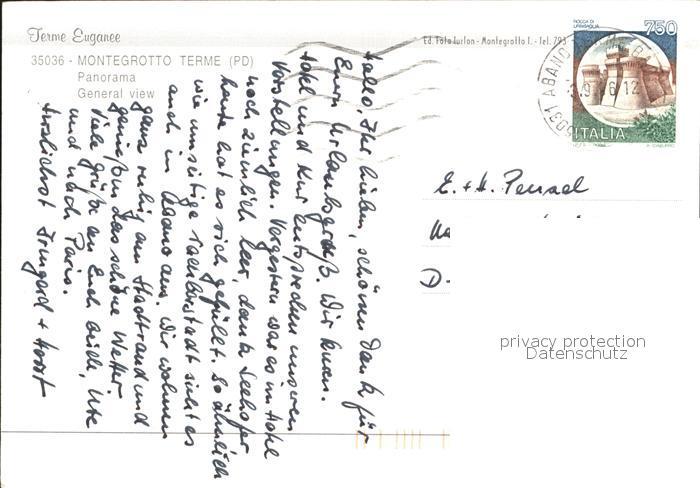 Terme Euganee
35036 - MONTEGROTTO TERME (PD)
Panorama
General view
Ed. Foto Furlon - Montegrotto T. - Tel. 793
ROCCA DI URBISAGLIA
750
ITALIA
35031 ABANO
Hallo, Ihr lieben, schönen Dank für
Euren Urlaubsgruß. Wir kuren.
Hotel und Kur entsprechen unseren
Vorstellungen. Vorgestern war es im Hotel
noch ziemlich leer, dank Seehofer
heute hat es sich gefüllt. So ähnlich
wie unseitige Nachbarstadt sieht es
auch in Abano aus. Wir wohnen
ganz ruhig am Stadtrand und
genießen das schöne Wetter.
Viele Grüße an Euch beide, Ute
und nach Paris.
Herzlichst Irmgard + Horst
E. + H.
D-
privacy protection
Datenschutz